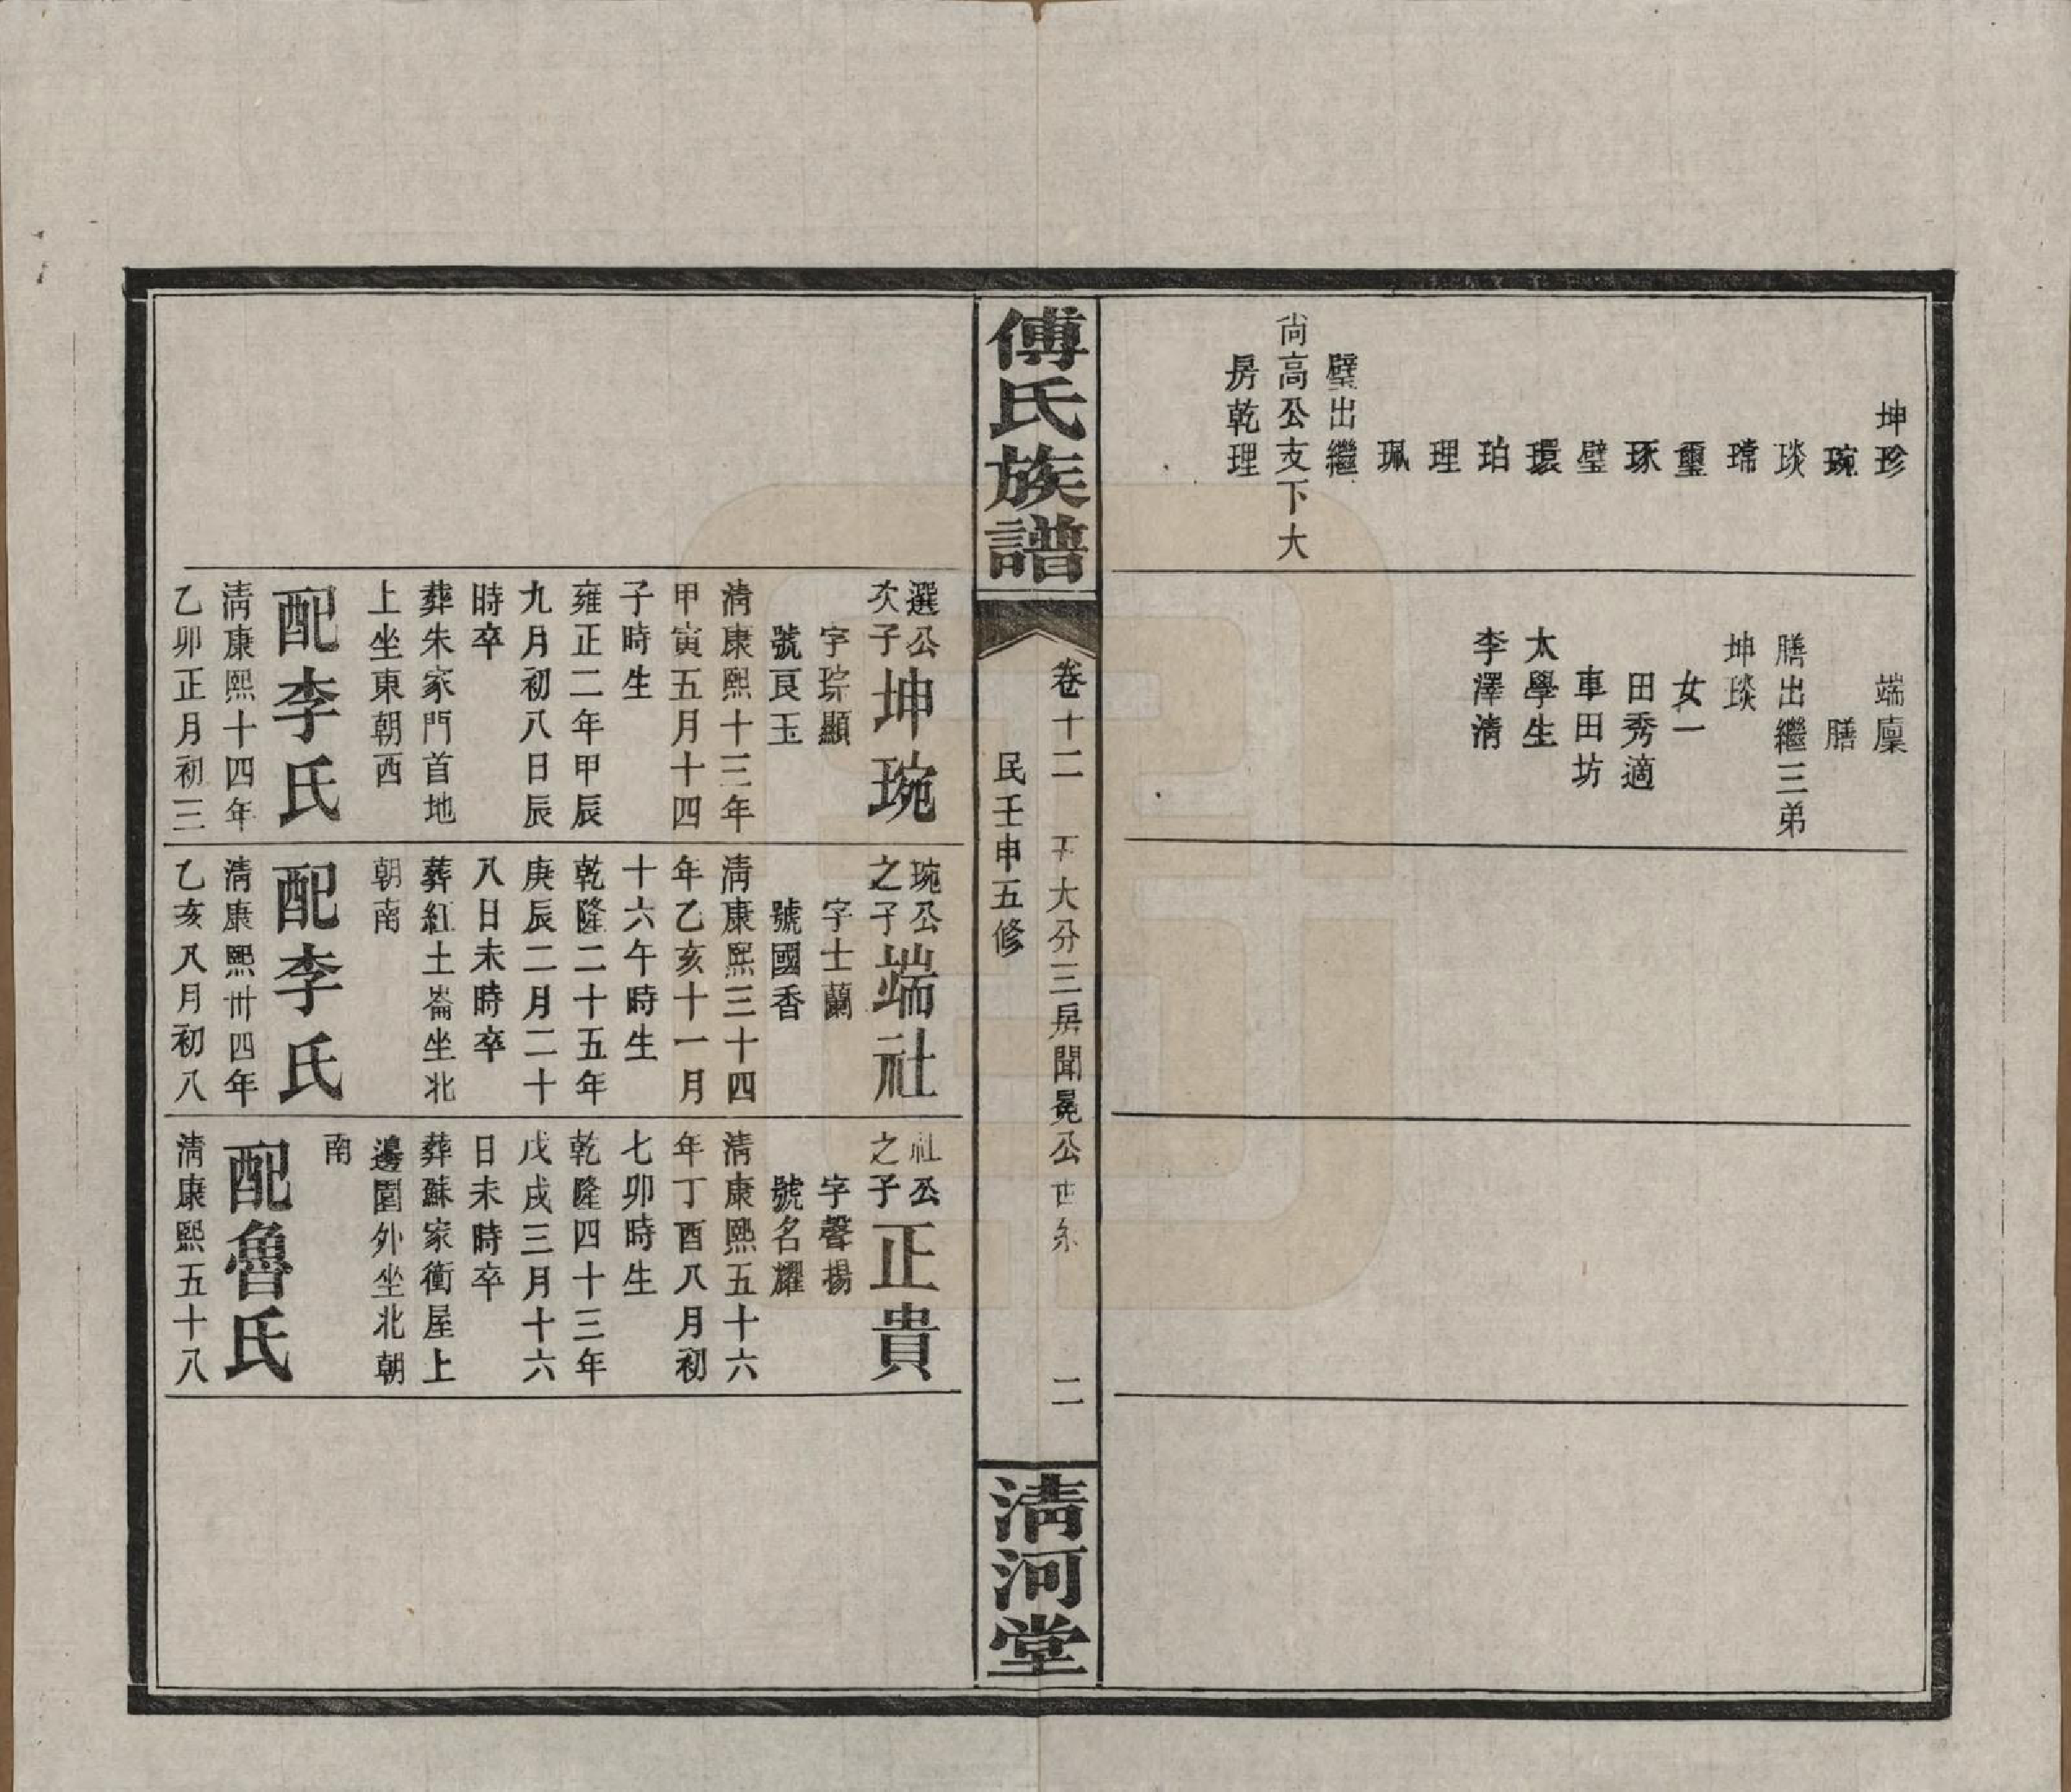 坤珍
琬
琰
瓀
璽
琢
璧
環
珀
理
珮
璧出繼
尙高公支下大
房乾理
端廩
膳
膳出繼三弟
坤琰
女一
田秀適
車田坊
太學生
李澤淸
傅氏族譜
卷十二 下大分三房聞冕公世系 二
民壬申五修
淸河堂
選公
次子
坤琬
字琮顯
號艮玉
淸康熙十三年
甲寅五月十四
子時生
雍正二年甲辰
九月初八日辰
時卒
葬朱家門首地
上坐東朝西
配李氏
淸康熙十四年
乙卯正月初三
琬公
之子
端社
字士蘭
號國香
淸康熙三十四
年乙亥十一月
十六午時生
乾隆二十五年
庚辰二月二十
八日未時卒
葬紅土崙坐北
朝南
配李氏
淸康熙卅四年
乙亥八月初八
社公
之子
正貴
字聲揚
號名耀
淸康熙五十六
年丁酉八月初
七卯時生
乾隆四十三年
戊戌三月十六
日未時卒
葬蘇家衝屋上
邊園外坐北朝
南
配魯氏
淸康熙五十八